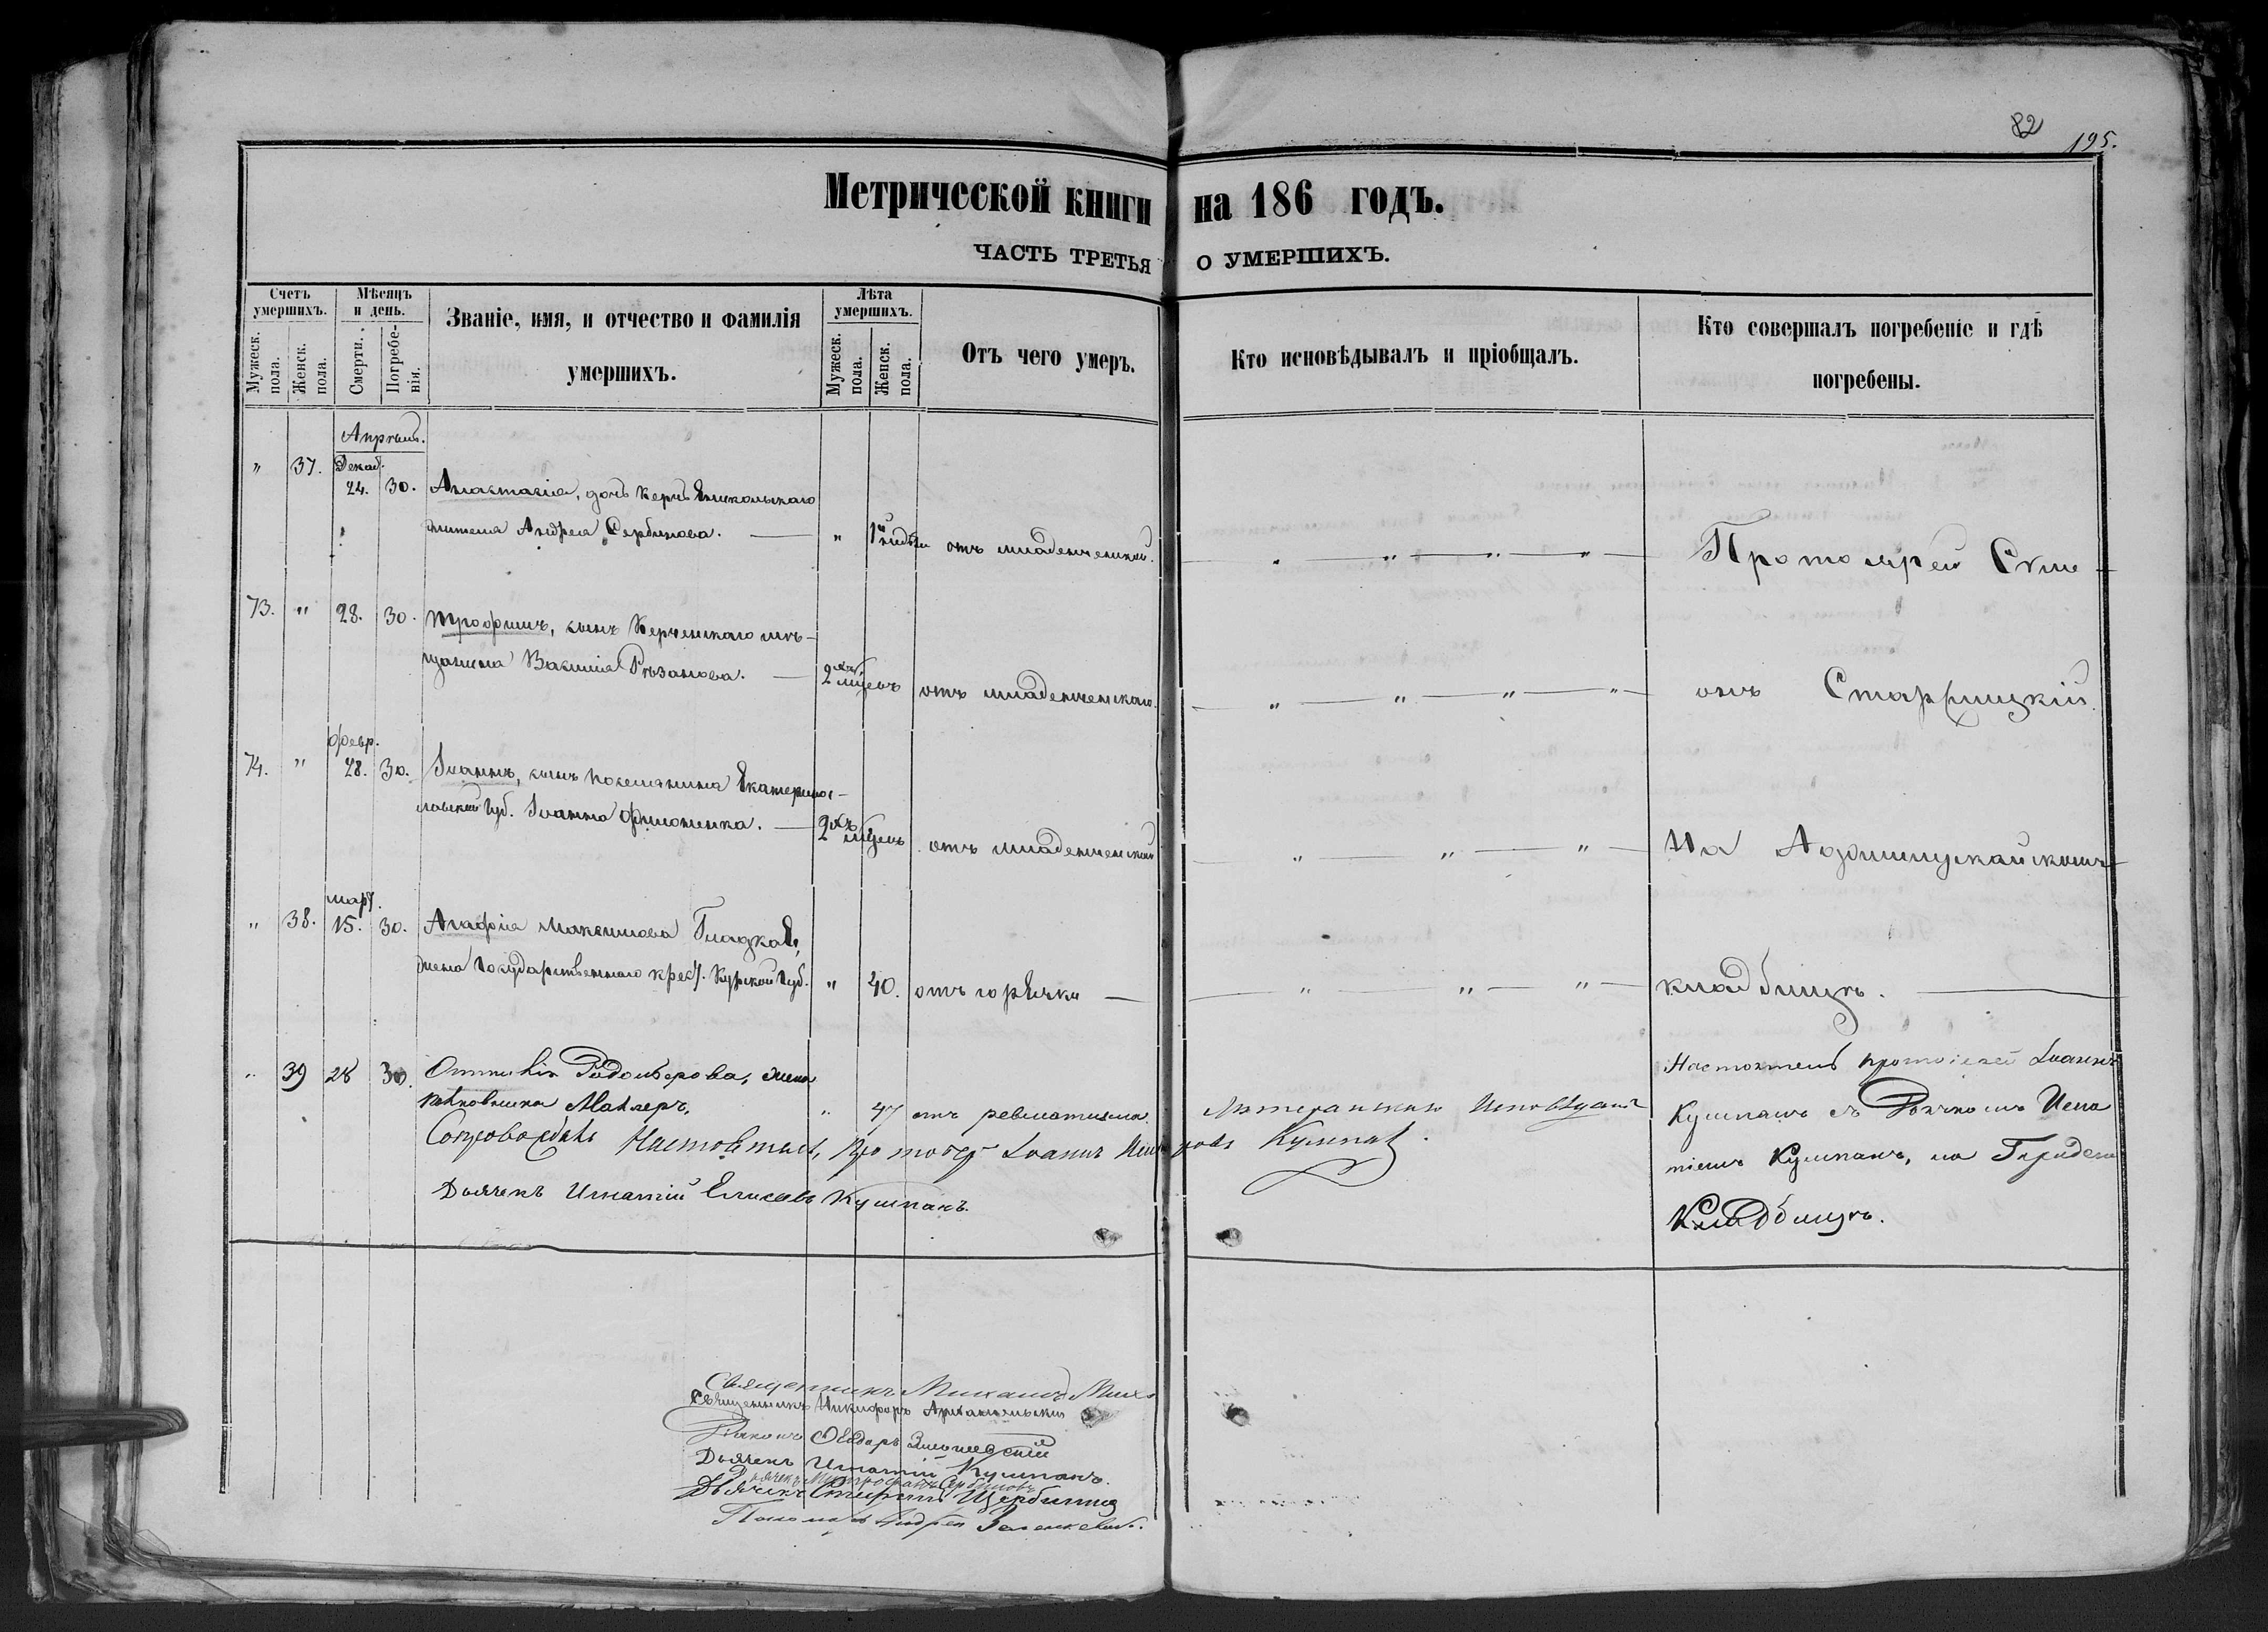 82
195.
Метрической книги на 186 годъ.
ЧАСТЬ ТРЕТЬЯ О УМЕРШИХЪ.
Счетъ умершихъ.
Мужеск. пола.
Женск. пола.
Мѣсяцъ и день.
Смерти.
Погребенія.
Званіе, имя, и отчество и фамилія умершихъ.
Лѣта умершихъ.
Мужеск. пола.
Женск. пола.
Отъ чего умеръ.
Кто исповѣдывалъ и пріобщалъ.
Кто совершалъ погребеніе и гдѣ погребены.
Апрѣль.
" 37. Декаб. 24. 30. Анастасія, дочь Керчь Еникольскаго
жителя Андрея Сербинова. — " 1й недѣли отъ младенческой. " — " — " — " — Протоіерей Сѵме-
73. " 28. 30. Трофимъ, сынъ Керченскаго мѣ-
щанина Василія Рѣзанова. — 2хъ мѣсецъ отъ младенческаго. " — " — " — " — онъ Старицкій.
февр.
74. " 28. 30. Іоаннъ, сынъ поселянина Екатеринос-
лавской губ. Іоанна Филоненка. — 2хъ мѣсецъ отъ младенческой — " — " — " — На Аджимушкайскомъ
март.
" 38. 15. 30. Агафія Максимова Гладкая,
жена Государственнаго крест. Курской губ. " 40. отъ горячки — " — " — " — кладбищѣ. —
" 39 28 30. Ѳедорова, жена
полковника " 47 отъ ревматизма Лютеранскаго Исповѣданія
Настоятель протоіерей Іоаннъ
Кумпанъ съ Дьячкомъ Игна
тіемъ Кумпанъ, на Городском
Кладбищѣ.
Сопровождалъ Настоятель, Протоіер. Іоаннъ Кумпанъ.
Дьячекъ Игнатій Елисеевъ Кумпанъ.
Священникъ Михаилъ
Священникъ Никифоръ Архангельскій
Діаконъ Ѳеодоръ
Дьячекъ Игнатій Кумпанъ.
Дьячекъ Митрофанъ Сербиновъ
Дьячекъ Щербина
Пономарь Андрей Зеленкевичъ.